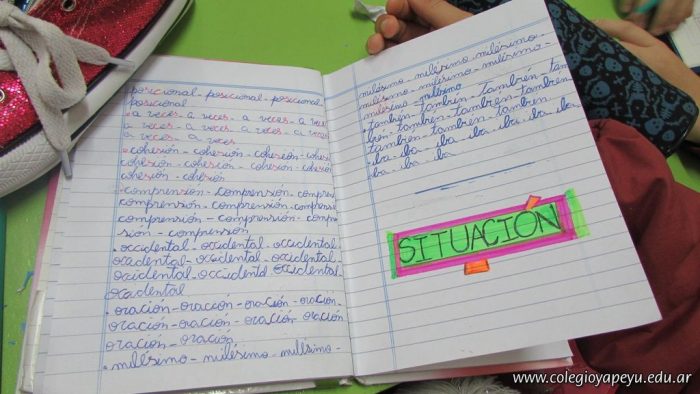 posicional - posicional - posicional
posicional
. a veces - a veces - a veces - a vece
a veces - a veces - a veces - a veces
a veces - a veces
. cohesión - cohesión - cohesión - cohesi
cohesión - cohesión - cohesión - cohesión
cohesión - cohesión
. comprensión - comprensión - compren
comprensión - comprensión - comprensión
comprensión - comprensión - compren
sión - comprensión
. occidental - occidental - occidental
occidental - occidental - occidental
occidental - occidental - occidental
occidental
. oración - oración - oración - oración -
oración - oración - oración - oración
oración - oración
. milésimo - milésimo - milésimo -
milésimo - milésimo - milésimo -
milésimo - milésimo - milésimo -
milésimo - milésimo
. también - también - también - tam
bién - también - también - también
también - también - también
. iba - iba - iba - iba - iba - iba - iba
iba - iba - iba
SITUACIÓN
www.colegioyapeyu.edu.ar